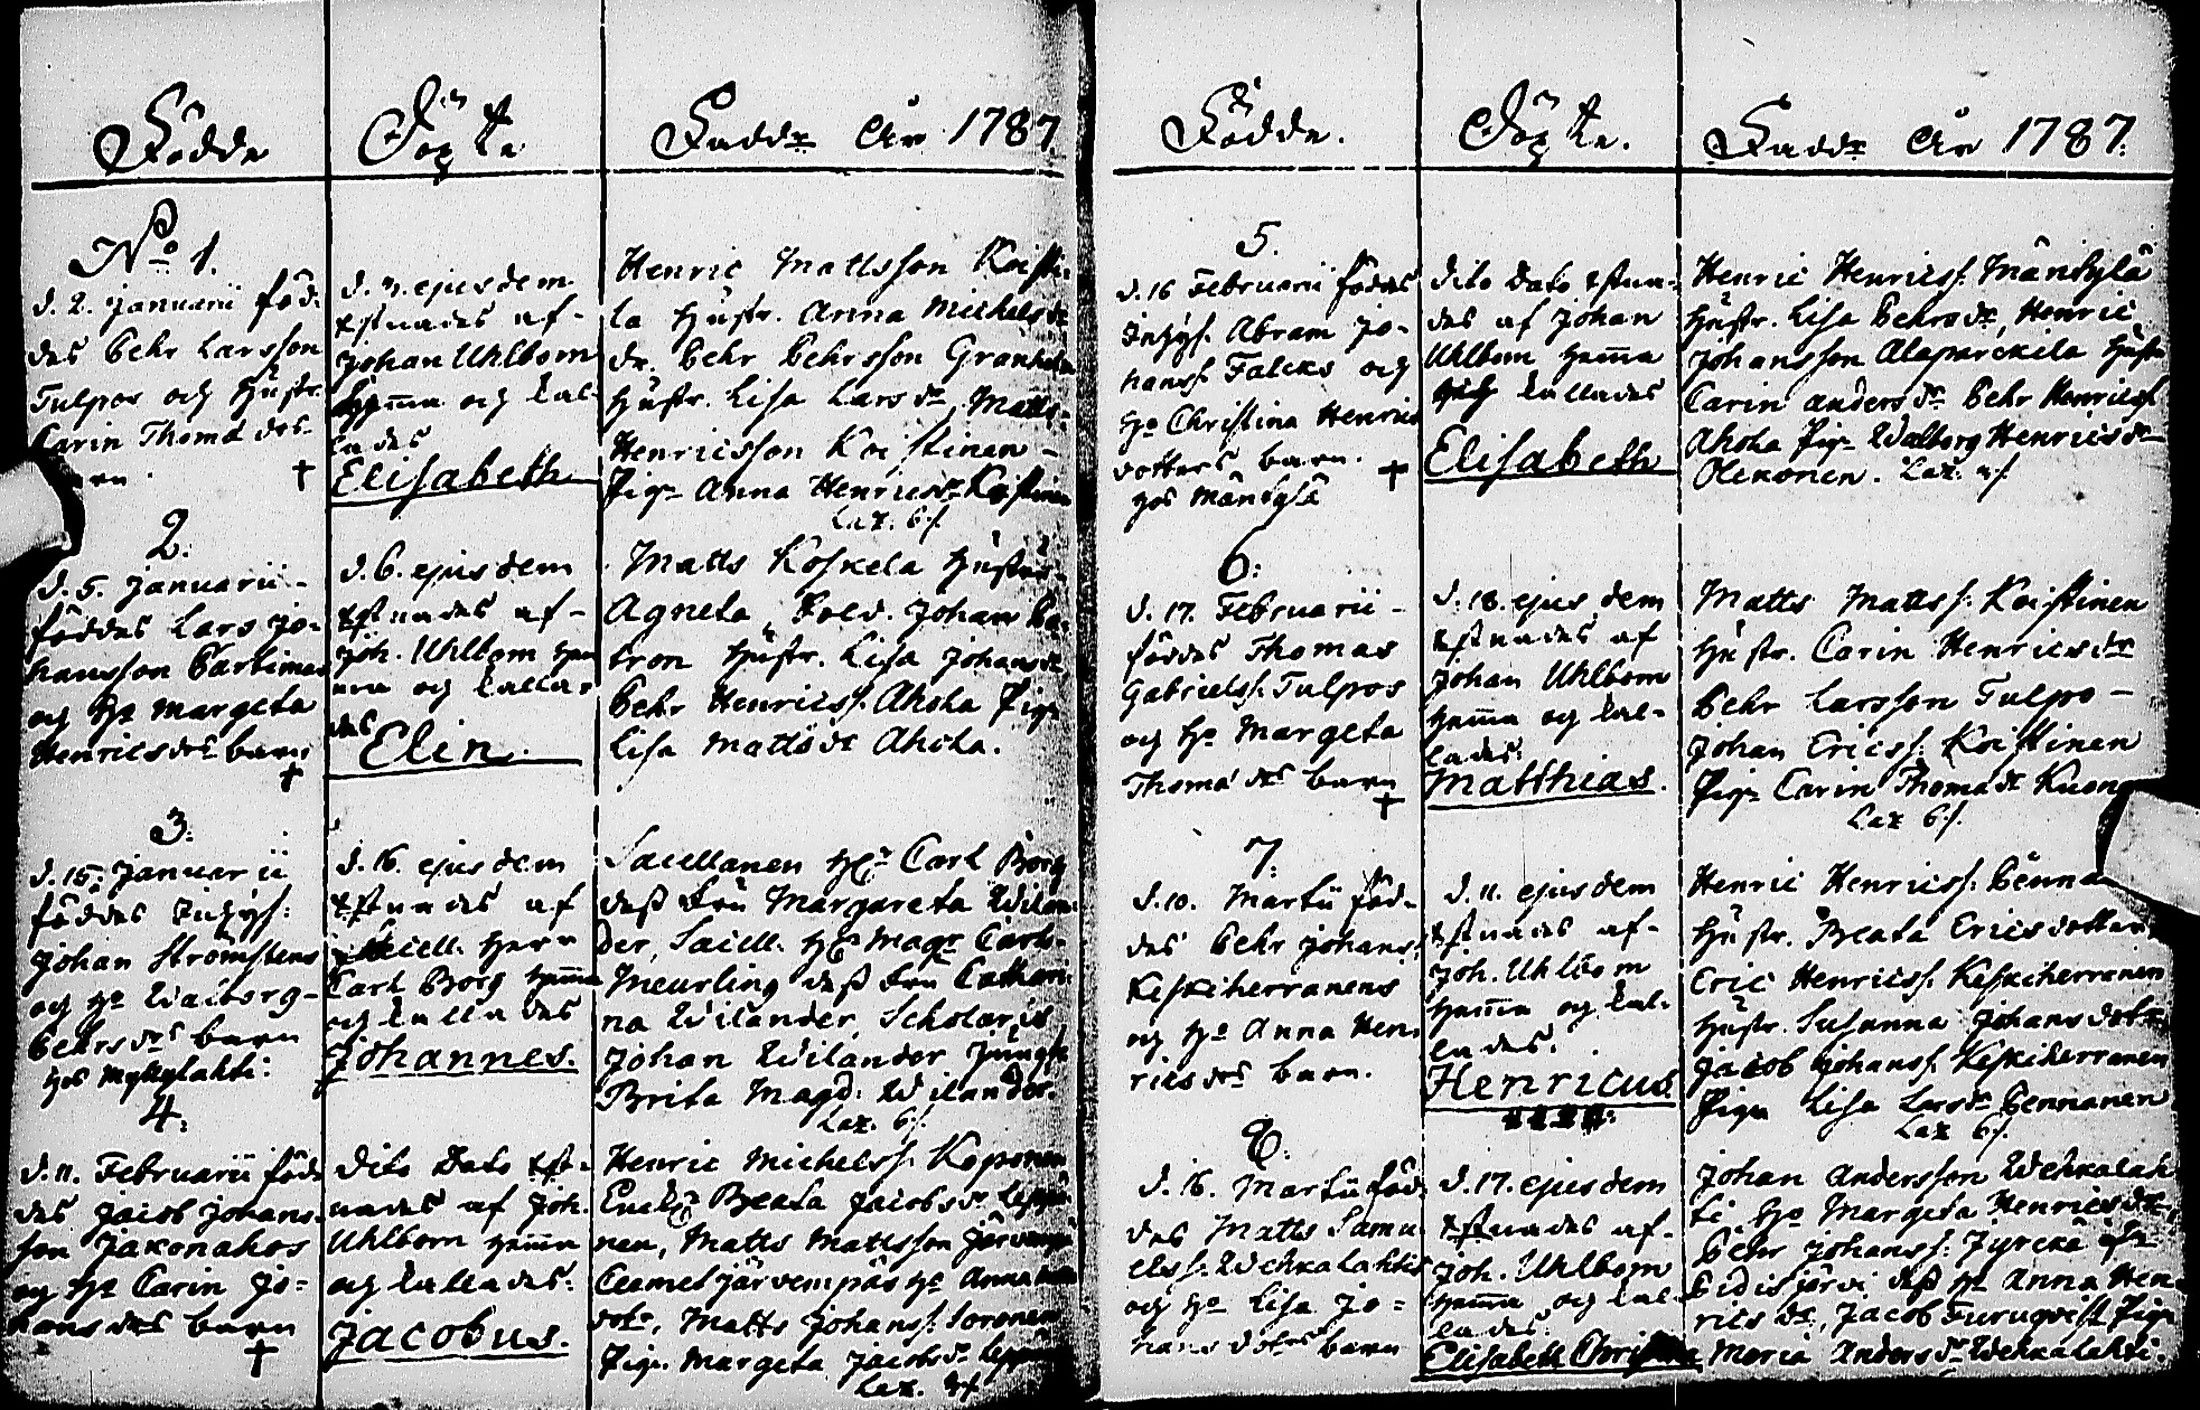 Födde
Döpte
Faddr År 1787.
No 1.
d. 2. Januarii föd-
des Pehr Larsson
Tulpos och hustr.
Carin Thomæ dors
barn. †
d. 3. ejusdem
Xstnades af
Johan Uhlbom
hemma och kal-
lades
Elisabeth
Henric Mattsson Koisti-
la hustr. Anna Michels
dr. Pehr Pehrsson Granholm
hustr. Lisa Lars dr, Matts
Henricsson Koistinen
Pig. Anna Henricsdr Koistinen
Lax. 6 f.
2.
d. 5. Januarii
föddes Lars Jo-
hansson Partimas
och Ho Margeta
Henricsdrs barn
†
d. 6. ejusdem
Xstnades af
Joh. Uhlbom hem
ma och kalla-
des
Elin.
Matts Koskela hustru
Agneta, Sold. Johan Pa-
tron hustr. Lisa Johansdr
Pehr Henricss. Ahola Pig.
Lisa Mattsdr Ahola.
3.
d. 15. Januarii
föddes Inhys:
Johan Strömstens
och Ho Walborg
Pehrsdrs barn
hos Myllylahti.
d. 16. ejusdem
Xstnades af
Sacell. Herr
Carl Borg hemma
och kallades
Johannes.
Sacellanen Hr Carl Borg
dess Fru Margareta Wilan-
der, Sacell. Hr Magr Carl
Meurling dess Fru Cathari-
na Wilander, Scholaris
Johan Wilander Jungfr
Brita Magd: Wilander.
Lax. 6 f.
4.
d. 11. Februarii föd-
des Jacob Johans-
son Jakonahos
och Ho Carin Jo-
hansdrs barn
†
Dito Dato Xst-
nades af Joh.
Uhlbom hemma
och kallades:
Jacobus.
Henric Michelss. Koponen
Enk. Beata Jacobsdr Leppä
nen, Matts Mattsson Järvenpä
Clemet Järvempäs Ho Anna
dotr, Matts Johanss. Soronen
Pig. Margeta Jacobsdr Leppä
Lax. 4 f
Födde.
Döpte.
Faddr År 1787.
5.
d. 16 Februarii föddes
Inhys. Abram Jo-
hanss. Falcks och
Ho Christina Henrics
dotters barn. †
hos Mändylä
Dito Dato Xstna-
des af Johan
Uhlbom hemma
och kallades
Elisabeth
Henric Henricss. Mändylä
hustr. Lisa Pehrsdr, Henric
Johansson Alaparckila hustr
Carin Andersdr Pehr Henricss
Ahola Pig. Walborg Henricsdr
Olckonen. Lax. 4 f.
6.
d. 17. Februarii
föddes Thomas
Gabrielss. Tulpos
och Ho Margeta
Thomædrs barn
†
d. 18. ejusdem
Xstnades af
Johan Uhlbom
hemma och kal-
lades:
Matthias.
Matts Mattss. Koistinen
hustr. Carin Henricsdr
Pehr Larsson Tulpo
Johan Ericss. Koistinen
Pig. Carin Thomædr Kuon
Lax 6 f.
7.
d. 10. Martii föd-
des Pehr Johanss.
Keskiherranens
och Ho Anna Hen-
ricsdrs barn.
d. 11. ejusdem
Xstnades af
Joh. Uhlbom
hemma och kal-
lades.
Henricus.
Henric Henricss. Penna
hustr. Beata Ericsdotter,
Eric Henricss. Keskiherranen
hustr. Susanna Johansdotr
Jacob Johanss. Keskiherranen
Pigan Lisa Larsdr Pennanen
Lax 6 f.
8.
d. 16. Martii föd-
des Matts Samu
elss. Wehkalahtis
och Ho Lisa Jo-
hansdotrs barn
d. 17. ejusdem
Xstnades af
Joh. Uhlbom
hemma och kal-
lades:
Elisabeth Christina
Johan Andersson Wehkalah
ti Ho Margeta Henricsdr,
Pehr Johanss: Jyrckä
Pidisjärvi dess Ho Anna Hen-
rics dr, Jacob Furuqvist Pig.
Maria Andersdr Wehkalahti.